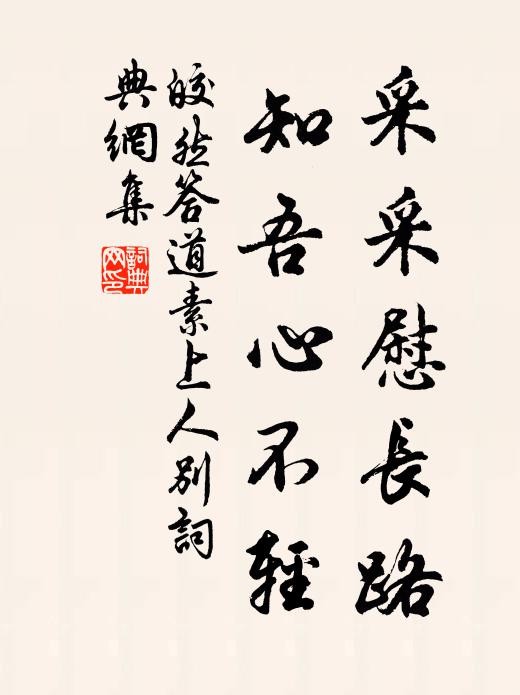 采采慰長路
知吾心不輕
皎然答道素上人別詞
典網集
詞典網印